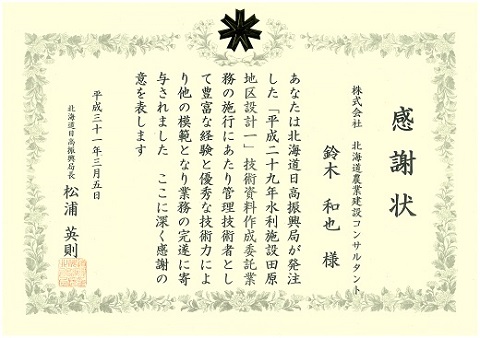 感謝状
株式会社 北海道農業建設コンサルタント
鈴木 和也 様
あなたは北海道日高振興局が発注
した「平成二十九年水利施設田原
地区設計一」技術資料作成委託業
務の施行にあたり管理技術者とし
て豊富な経験と優秀な技術力によ
り他の模範となり業務の完遂に寄
与されました ここに深く感謝の
意を表します
平成三十一年三月五日
北海道日高振興局長 松浦 英則